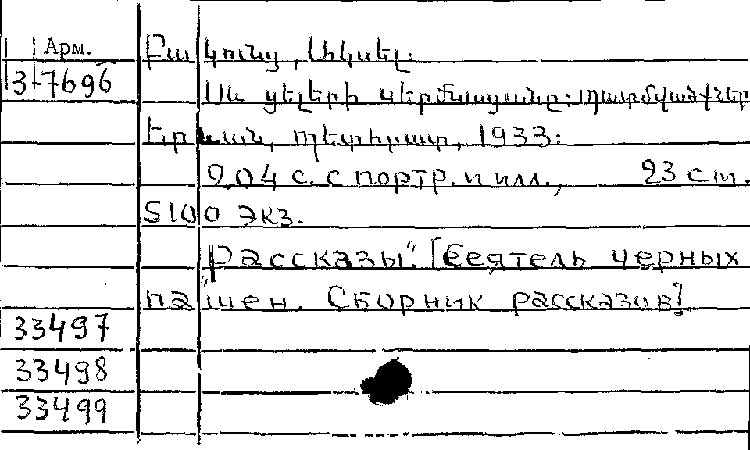 Арм.
3-7696
Բակունց, Ակսել.
Սև ցելերի սերմնացանը: պատմվածքներ
Երևան, պետհրատ, 1933:
204 с. с портр. и илл., 23 cm.
5100 экз.
"Рассказы". [Сеятель черных
пашен. Сборник рассказов]
33497
33498
33499